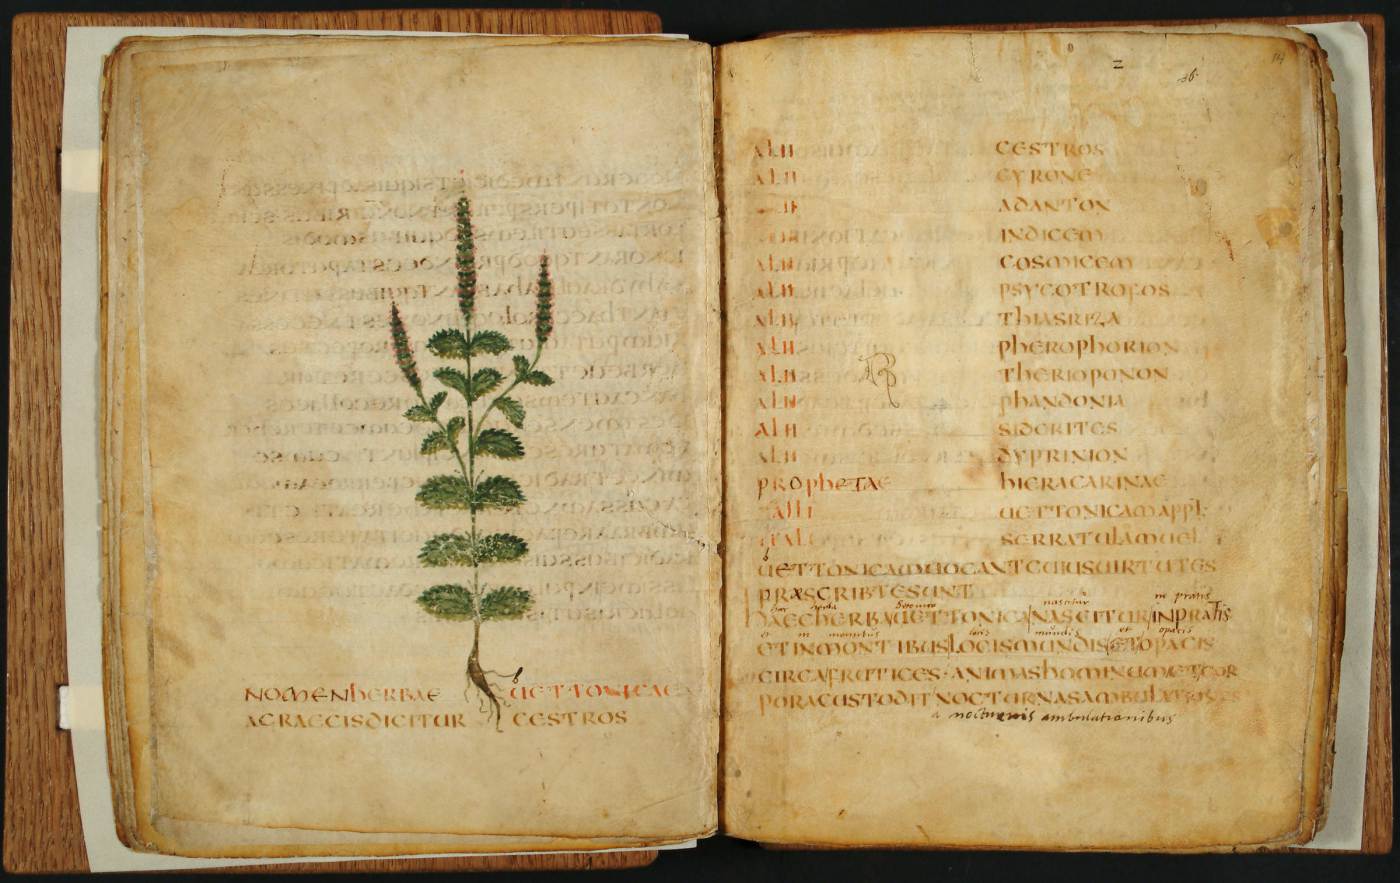 NOMEN hERBAE UETTONICAE
b
AGRAECIS DICITUR CESTROS
z
36
ALII CESTROS
ALII CYRONE
ADANTON
INDICEM
ALII COSMICEM
ALII PSYCOTROFOS
ALII ThIASRIZA
ALII phEROphORION
ALII ThERIOPONON
ALII phANDONIA
ALII SIDERITES
ALII DYPRINION
PROphETAE hIERACARINAE
GALLI UETTONICAM APPL
ITALI SERRATULAM UEL
b
UETTONICAM UOCANT CUIUS UIRTUTES
PRAESCRIBTE SUNT
herba betonica nascitur in pratis
hAEC hERBA UETTONICA NASCITUR IN PRATIS
et in montibus locis mundis et opacis
ET IN MONTIBUS LOCIS MUNDIS ET OPACIS
CIRCA FRUTICES · ANIMAS hOMINUM ET COR
PORA CUSTODIT NOCTURNAS AMBULATIONES
a nocturnis ambulationibus